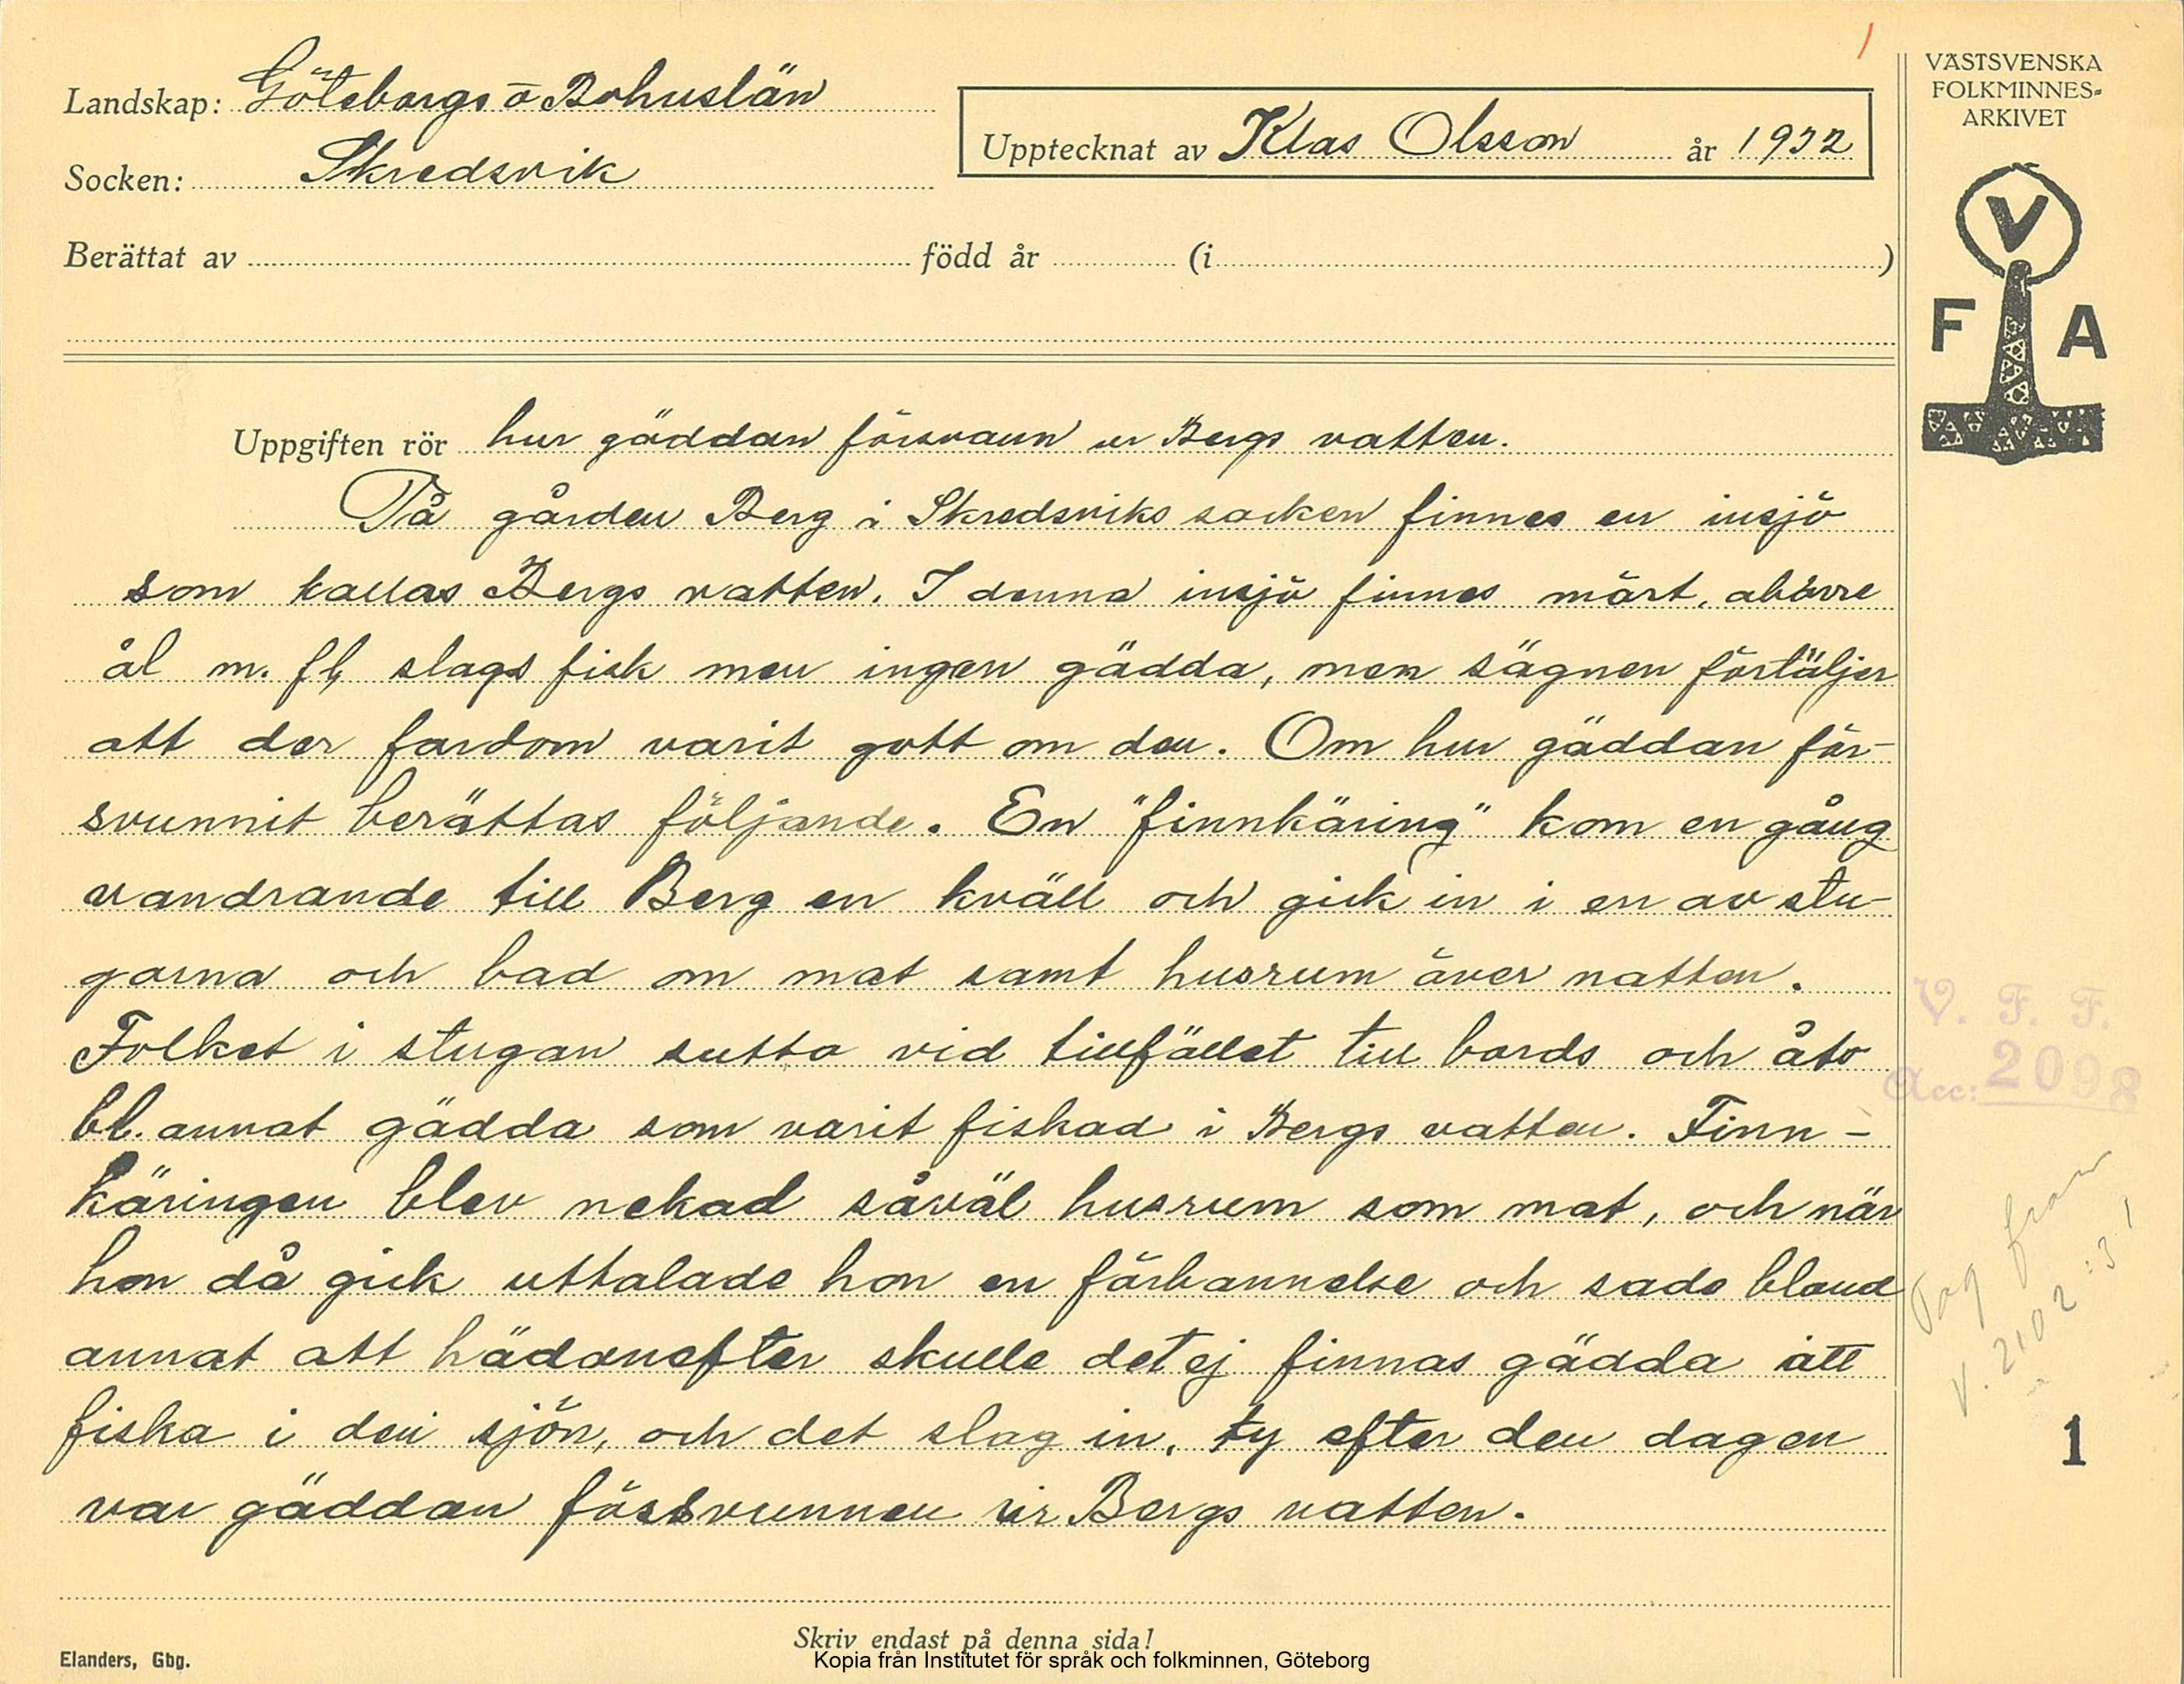 Landskap: Göteborgs o Bohuslän
Socken: Skredsvik
Upptecknat av Klas Olsson år 1932
Berättat av född år (i )
VÄSTSVENSKA
FOLKMINNES-
ARKIVET
V
F A
Uppgiften rör hur gäddan försvann ur Bergs vatten.
På gården Berg i Skredsviks socken finnes en insjö
som kallas Bergs vatten. I denna insjö finnes mört, abborre
ål m. fl, slags fisk men ingen gädda, men sägnen förtäljer
att der fordom varit gott om den. Om hur gäddan för-
svunnit berättas följande. En "finnkäring" kom en gång
vandrande till Berg en kväll och gick in i en av stu-
gorna och bad om mat samt husrum över natten.
Folket i stugan sutto vid tillfället till bords och åto
bl. annat gädda som varit fiskad i Bergs vatten. Finn-
käringen blev nekad såväl husrum som mat, och när
hon då gick uttalade hon en förbannelse och sade bland
annat att hädanefter skulle det ej finnas gädda att
fiska i den sjön, och det slog in, ty efter den dagen
var gäddan försvunnen ur Bergs vatten.
V. F. F.
Acc: 2098
V. 2102:31
1
Skriv endast på denna sida!
Elanders, Gbg.
Kopia från Institutet för språk och folkminnen, Göteborg